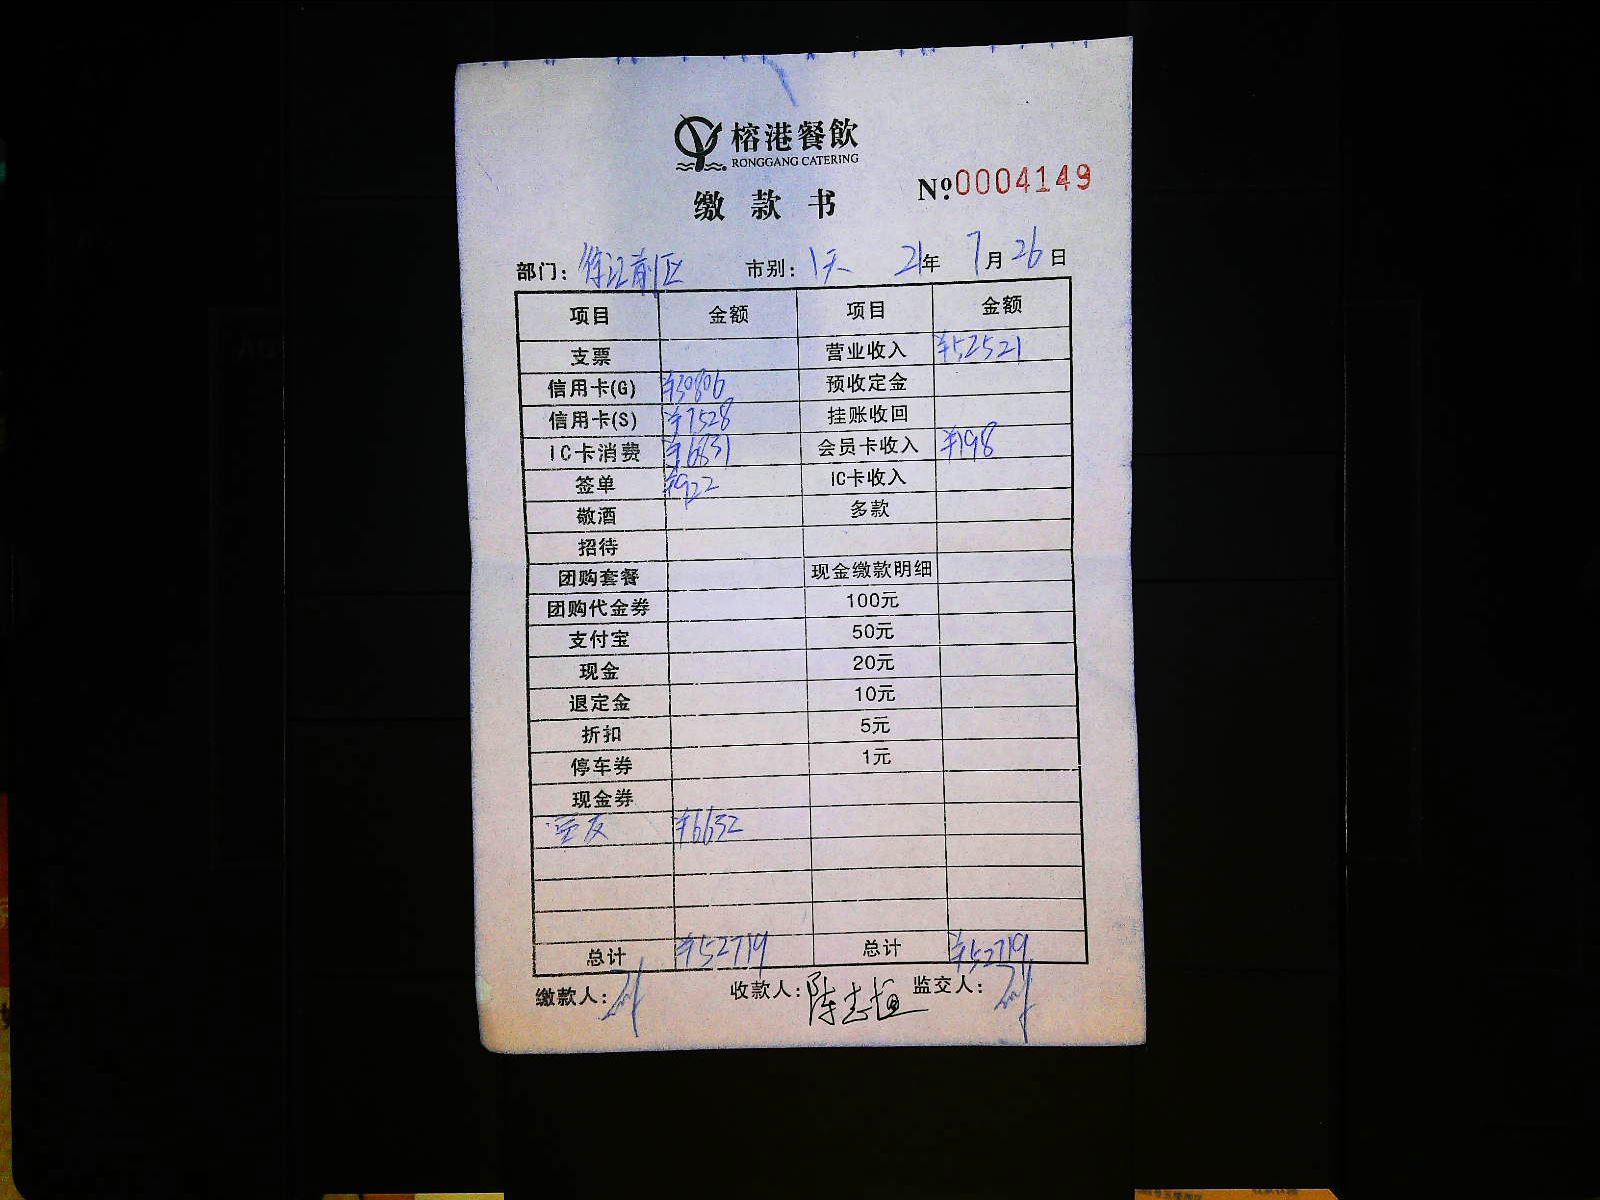 榕港餐飲
RONGGANG CATERING
缴款书 No.0004149
部门：前区 市别：1天 21年 7月 26日
项目 金额 项目 金额
支票 营业收入 ¥52521
信用卡(G) ¥30806 预收定金
信用卡(S) ¥7528 挂账收回
IC卡消费 ¥6831 会员卡收入 ¥198
签单 ¥922 IC卡收入
敬酒 多款
招待
团购套餐 现金缴款明细
团购代金券 100元
支付宝 50元
现金 20元
退定金 10元
折扣 5元
停车券 1元
现金券
¥6632
总计 ¥52719 总计 ¥52719
缴款人： 收款人：陈志 监交人：